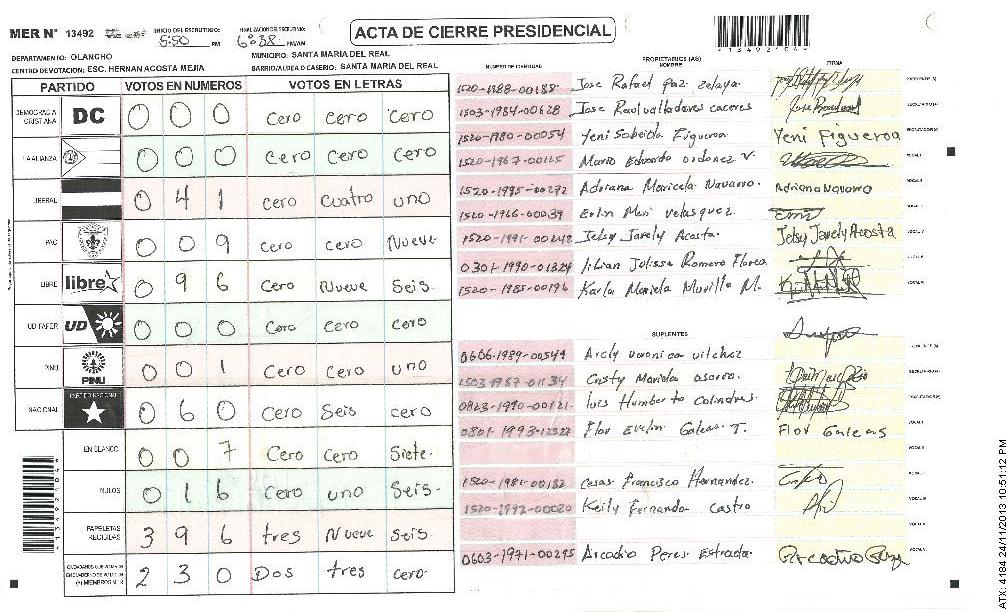 MER N° 13492 INICIO DEL ESCRUTINIO: 5:50 PM FINALIZACION DEL ESCRUTINIO: 6:38 PM/AM
ACTA DE CIERRE PRESIDENCIAL
DEPARTAMENTO: OLANCHO MUNICIPIO: SANTA MARIA DEL REAL
CENTRO DE VOTACION: ESC. HERNAN ACOSTA MEJIA BARRIO/ALDEA O CASERIO: SANTA MARIA DEL REAL
PARTIDO VOTOS EN NUMEROS VOTOS EN LETRAS
DEMOCRACIA CRISTIANA DC 0 0 0 cero cero cero
LA ALIANZA 0 0 0 cero cero cero
LIBERAL 0 4 1 cero cuatro uno
PAC 0 0 9 cero cero Nueve
LIBRE libre 0 9 6 Cero Nueve Seis.
UD FAPER UD 0 0 0 Cero cero cero
PINU PINU 0 0 1 Cero Cero uno
NACIONAL PARTIDO NACIONAL 0 6 0 Cero Seis cero
EN BLANCO 0 0 7 Cero Cero Siete.
NULOS 0 1 6 Cero uno Seis.
PAPELETAS RECIBIDAS 3 9 6 tres Nueve Seis.
2 3 0 Dos tres cero.
NUMERO DE IDENTIDAD PROPIETARIOS (AS) NOMBRE FIRMA
1520-1988-00188 Jose Rafael paz zelaya.
1503-1984-00628 Jose Raul valladares caceres
1520-1980-00054 Yeni Sobeida Figueroa. Yeni Figueroa
1520-1967-00125 Mario Edoardo ordonez V.
1520-1995-00272 Adriana Maricela Navarro. Adriana Navarro
1520-1966-00039 Erlin Meri velasquez.
1520-1991-00242 Jelsy Jarely Acosta. Jelsy Jarely Acosta
0301-1990-01324 Lilian Julissa Romero Flores
1520-1985-00196 Karla Mariela Murillo M.
SUPLENTES
0606-1989-00549 Arely veronica vilchez
1503-1987-01134 Cristy Mariela osorro.
0823-1990-00121 luis Humberto Colindres.
0801-1993-12327 Flor Evelin Galeas T. Flor Galeas
1520-1981-00182 Cesar Francisco Hernandez.
1520-1992-00020 Keily Fernanda castro
0603-1971-00295 Arcadio Peres Estrada.
ATX: 4184 24/11/2013 10:51:12 PM